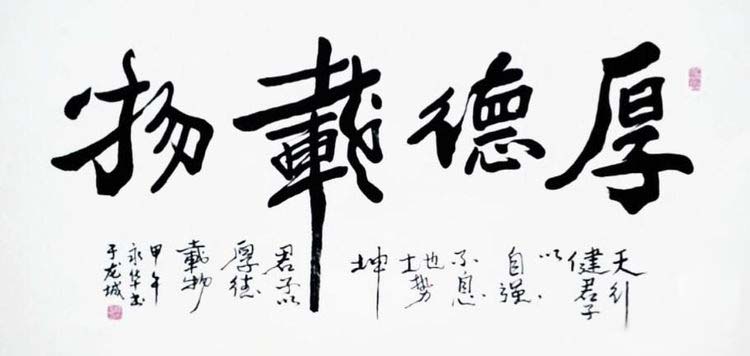 厚德載物
天行
健君子
以
自强
不息
地势
坤
君子以
厚德
載物
甲午
永华书
于龙城